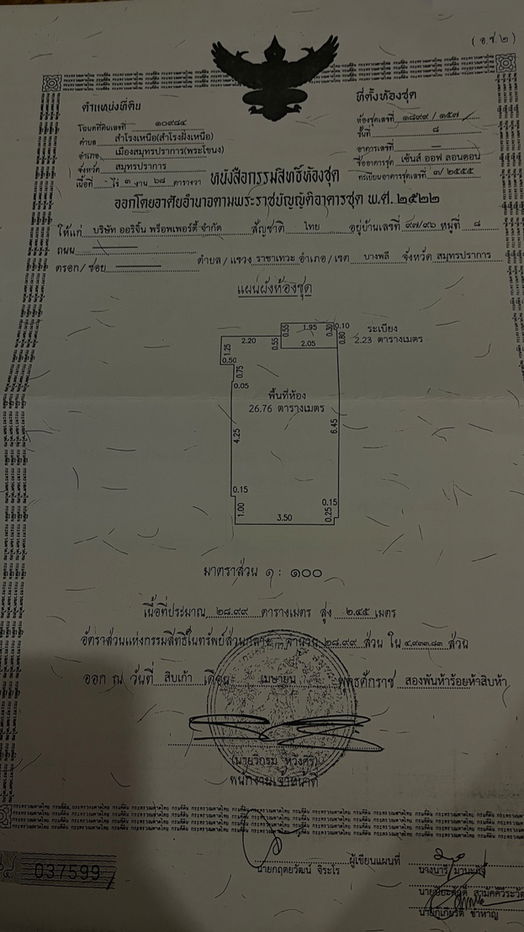 ( อ.ช.๒ )
ตำแหน่งที่ดิน
ที่ตั้งห้องชุด
โฉนดที่ดินเลขที่ ๑๐๙๘๔
ห้องชุดเลขที่ ๑๘๙๙ / ๑๕๗
ตำบล สำโรงเหนือ(สำโรงฝั่งเหนือ)
ชั้นที่ ๘
อำเภอ เมืองสมุทรปราการ(พระโขนง)
อาคารเลขที่ —
จังหวัด สมุทรปราการ
ชื่ออาคารชุด เค้นส์ ออฟ ลอนดอน
เนื้อที่ - ไร่ ๓ งาน ๖๘ ตารางวา
ทะเบียนอาคารชุดเลขที่ ๓/ ๒๕๕๕
หนังสือกรรมสิทธิ์ห้องชุด
ออกโดยอาศัยอำนาจตามพระราชบัญญัติอาคารชุด พ.ศ. ๒๕๒๒
ให้แก่ บริษัท ออริจิ้น พร็อพเพอร์ตี้ จำกัด สัญชาติ ไทย อยู่บ้านเลขที่ ๙๗/๙๖ หมู่ที่ ๘
ถนน
ตรอก/ซอย ตำบล/แขวง ราชาเทวะ อำเภอ/เขต บางพลี จังหวัด สมุทรปราการ
แผนผังห้องชุด
1.95 0.10
0.55 0.30
2.20 2.05 0.80
0.55
1.25
0.50
0.75
0.05
ระเบียง
2.23 ตารางเมตร
พื้นที่ห้อง
26.76 ตารางเมตร
4.25 6.45
0.15 0.15
1.00 3.50 0.25
มาตราส่วน ๑ : ๑๐๐
เนื้อที่ประมาณ ๒๘.๙๙ ตารางเมตร สูง ๒.๔๕ เมตร
อัตราส่วนแห่งกรรมสิทธิ์ในทรัพย์ส่วนกลาง จำนวน ๒๘.๙๙ ส่วน ใน ๔,๙๓๓.๘๓ ส่วน
ออก ณ วันที่ สิบเก้า เดือน เมษายน พุทธศักราช สองพันห้าร้อยห้าสิบห้า
พนักงานเจ้าหน้าที่
037599
นายกฤตยวัฒน์ จิระโร
ผู้เขียนแผนที่